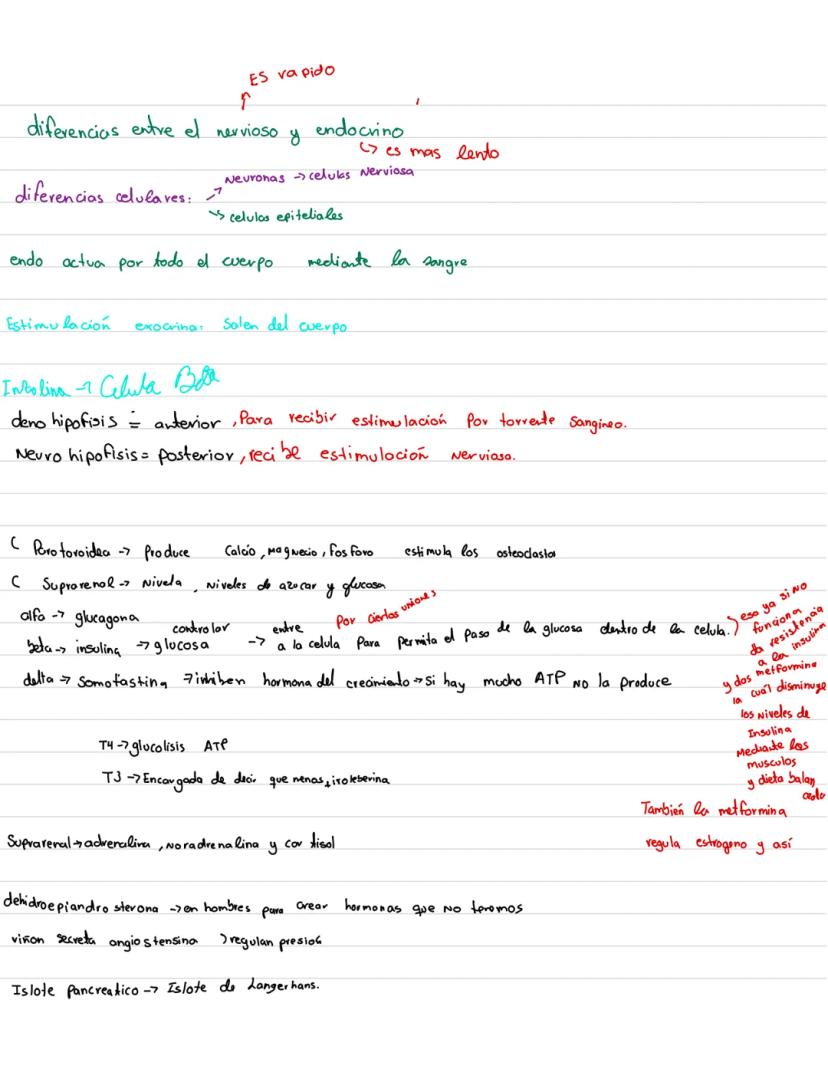 ES rapido
diferencias entre el nervioso y endocrino
↳ es mas lento
Neuronas → celulas Nerviosa
diferencias celulares:
↘ celulas epiteliales
endo actua por todo el cuerpo mediante la sangre
Estimulación exocrina: Salen del cuerpo
Insulina → Celula Beta
denohipofisis = anterior, Para recibir estimulación Por torrente Sangineo.
Neuro hipofisis = Posterior, recibe estimulación Nerviosa.
Paratoroidea → Produce Calcio, magnecio, fosforo estimula los osteoclastos
Suprarenal → Nivela, Niveles de azucar y glucosa
alfa → glucagona
Por ciertas uniones
controlar entre
beta → insulina → glucosa → a la celula Para Permita el Paso de la glucosa dentro de la celula.
eso ya si no
funciona
da resistencia
a la insulina
delta → Somotasting → inhiben hormona del crecimiento → Si hay mucho ATP NO la produce
y dos metformina
la cual disminuye
los Niveles de
Insulina
Mediante los
musculos
y dieta balan
ceada
T4 → glucolisis ATP
T3 → Encargada de decir que
También la metformina
regula estrogeno y así
Suprarenal → adrenalina, Noradrenalina y cortisol
dehidroepiandrosterona → en hombres para crear hormonas que NO tenemos
riñon secreta angiostensina > regulan presion
Islote Pancreatico → Islote de Langerhans.